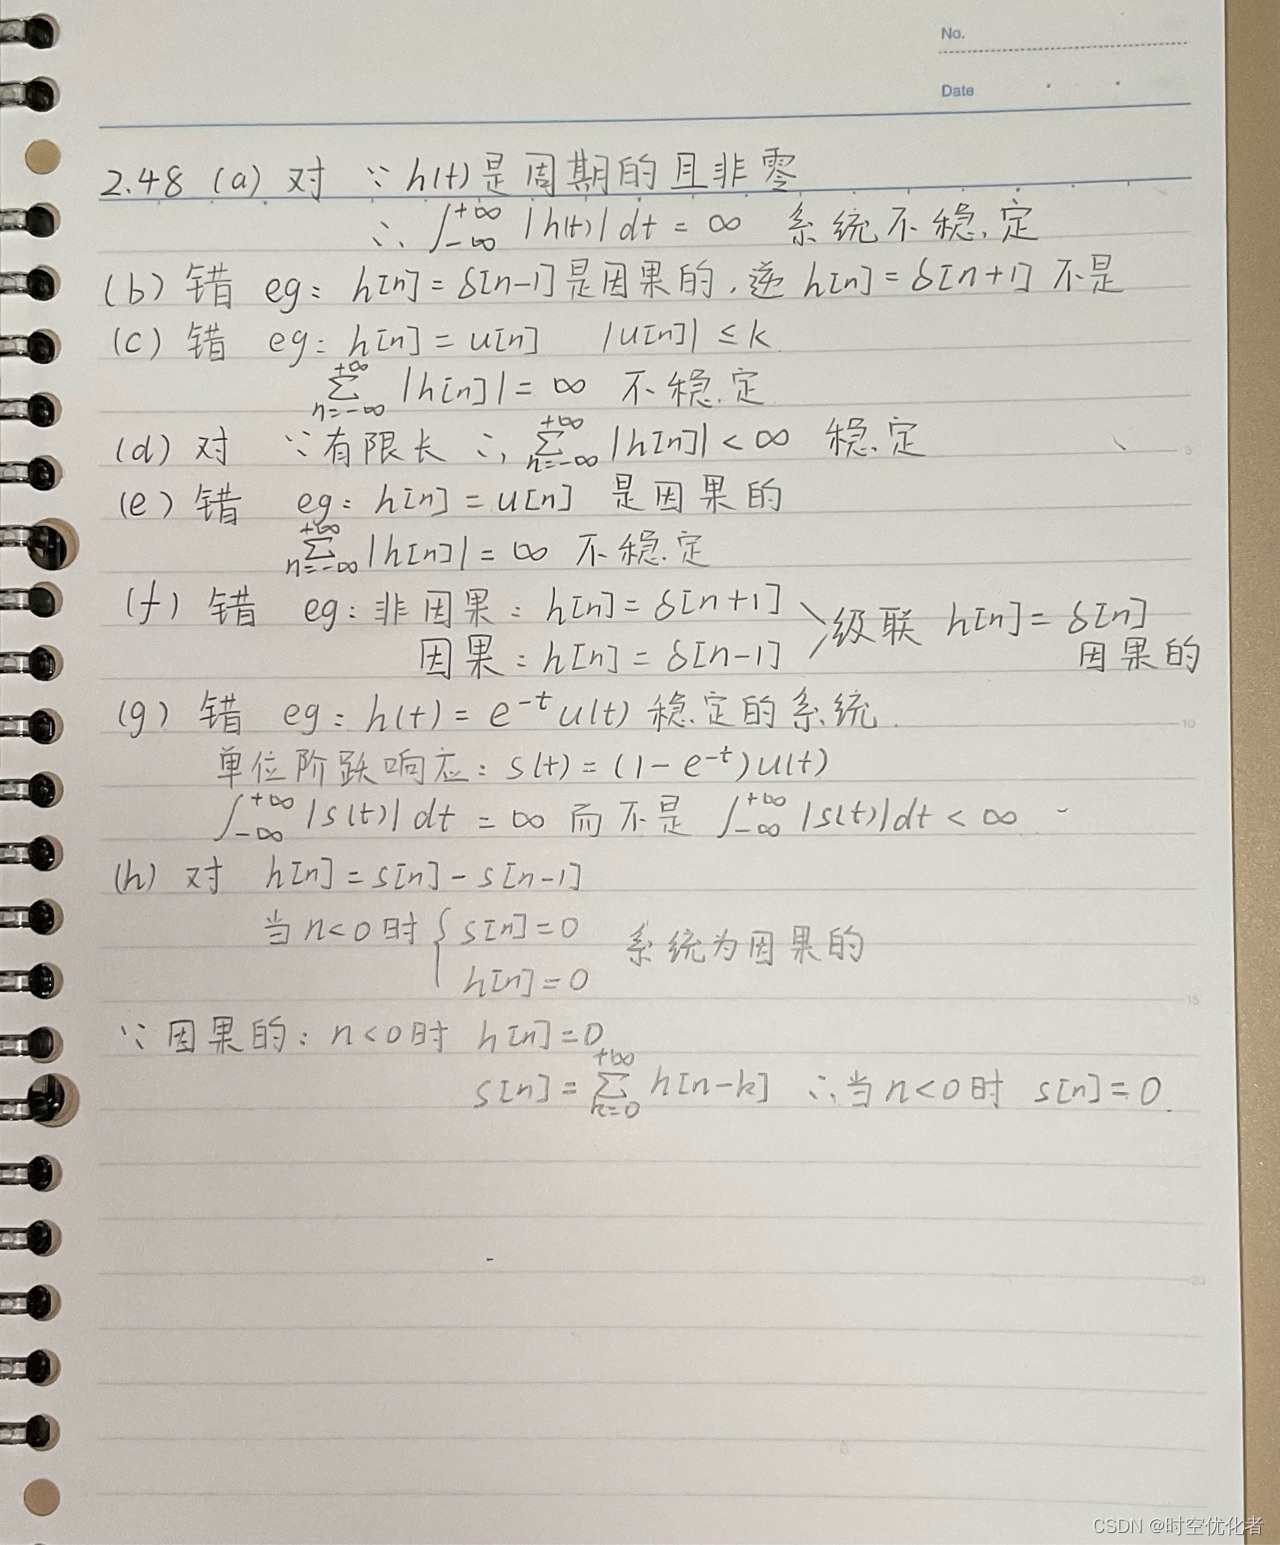 No.
Date
2.48 (a) 对 ∵ h(t)是周期的且非零
∴ ∫_{-∞}^{+∞} |h(t)| dt = ∞ 系统不稳定
(b) 错 eg: h[n] = δ[n-1]是因果的, 逆 h[n] = δ[n+1] 不是
(c) 错 eg: h[n] = u[n] |u[n]| ≤ k
∑_{n=-∞}^{+∞} |h[n]| = ∞ 不稳定
(d) 对 ∵有限长 ∴ ∑_{n=-∞}^{+∞} |h[n]| < ∞ 稳定
5
(e) 错 eg: h[n] = u[n] 是因果的
∑_{n=-∞}^{+∞} |h[n]| = ∞ 不稳定
(f) 错 eg: 非因果: h[n] = δ[n+1]
因果: h[n] = δ[n-1]
级联 h[n] = δ[n]
因果的
(g) 错 eg: h(t) = e^{-t} u(t) 稳定的系统
10
单位阶跃响应: s(t) = (1 - e^{-t}) u(t)
∫_{-∞}^{+∞} |s(t)| dt = ∞ 而不是 ∫_{-∞}^{+∞} |s(t)| dt < ∞
(h) 对 h[n] = s[n] - s[n-1]
当 n<0 时 { s[n] = 0
h[n] = 0
系统为因果的
15
∵ 因果的: n<0时 h[n] = 0
s[n] = ∑_{k=0}^{+∞} h[n-k] ∴当 n<0时 s[n] = 0.
20
CSDN @时空优化者